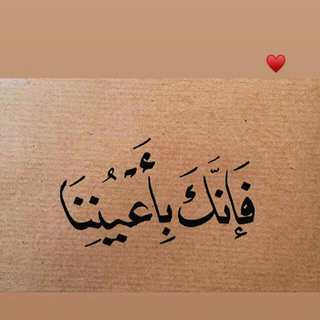 فَإِنَّكَ بِأَعْيُنِنَا